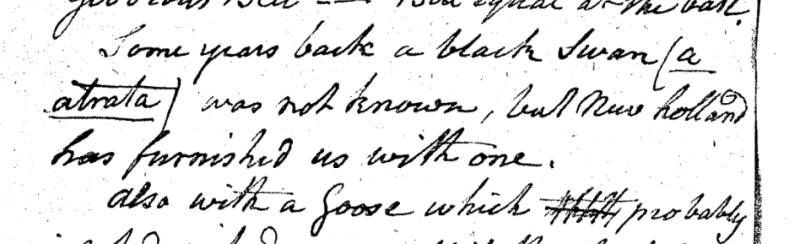 Bill — Bill equal at the base.
Some years back a black Swan (a
atrata) was not known, but New holland
has furnished us with one.
also with a Goose which probably